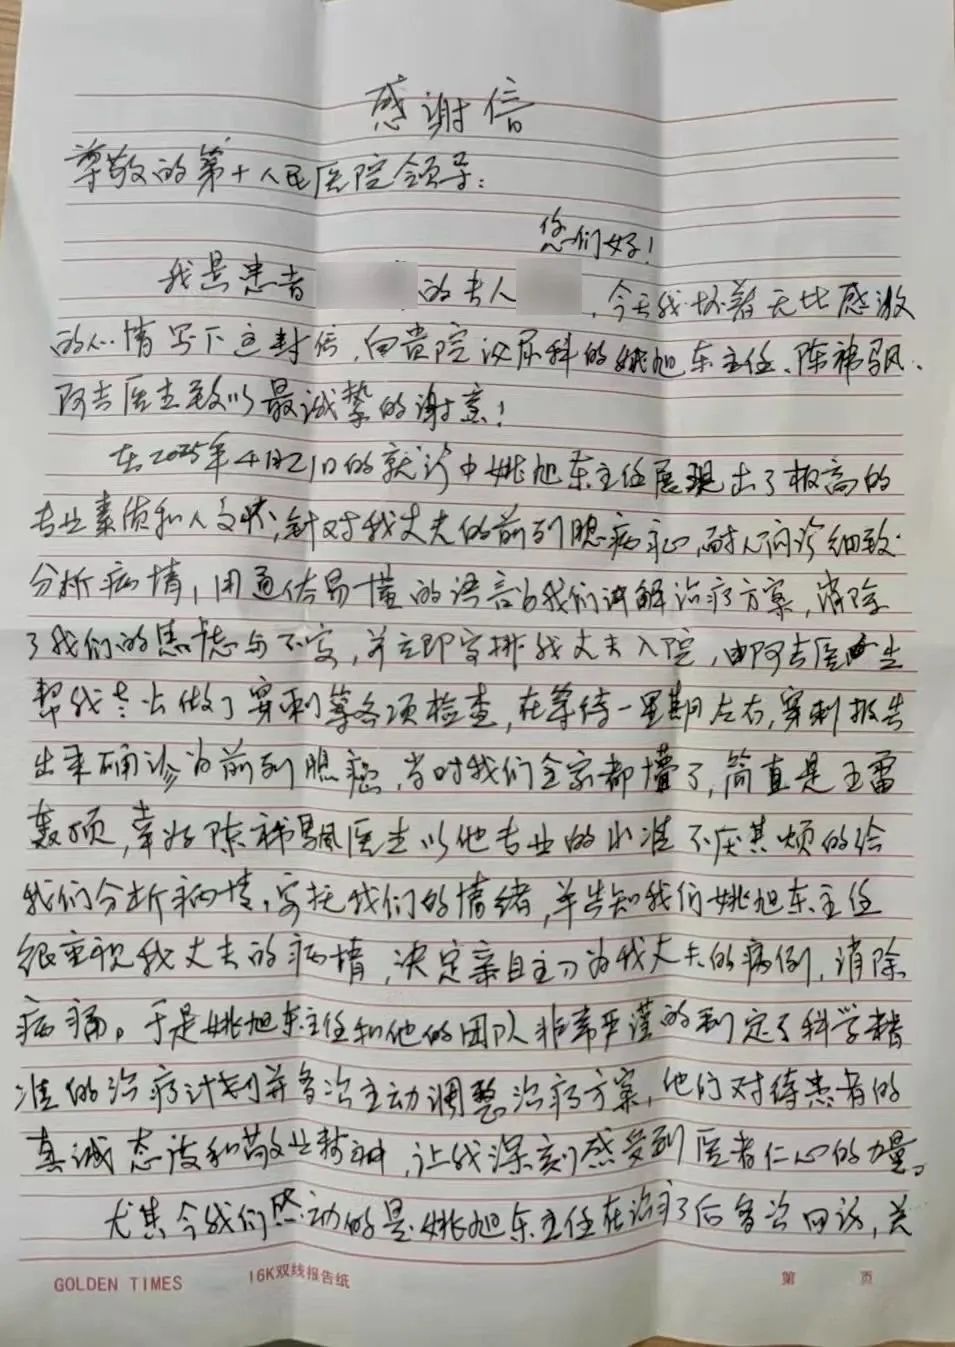 感谢信
尊敬的第十人民医院领导：
您们好！
我是患者的夫人，今天我怀着无比感激
的心情写下这封信，向贵院泌尿科的姚旭东主任、陈祎飒、
阿吉医生致以最诚挚的谢意！
在2025年4月21日的就诊中姚旭东主任展现出了极高的
专业素质和人文怀，针对我丈夫的前列腺病症，耐心问诊细致
分析病情，用通俗易懂的语言为我们讲解治疗方案，消除
了我们的焦虑与不安，并立即安排我丈夫入院，由阿吉医生
帮我丈夫做了穿刺等各项检查，在等待一星期左右，穿刺报告
出来确诊为前列腺癌，当时我们全家都懵了，简直是五雷
轰顶，幸好陈祎飒医生以他专业的水准不厌其烦的给
我们分析病情，安抚我们的情绪，并告知我们姚旭东主任
很重视我丈夫的病情，决定亲自主刀为我丈夫的病例，消除
病痛。于是姚旭东主任和他的团队非常严谨的制定了科学精
准的治疗计划并多次主动调整治疗方案，他们对待患者的
真诚态度和敬业精神，让我深刻感受到医者仁心的力量。
尤其令我们感动的是姚旭东主任在治疗后多次回访，关
GOLDEN TIMES 16K双线报告纸 第 页